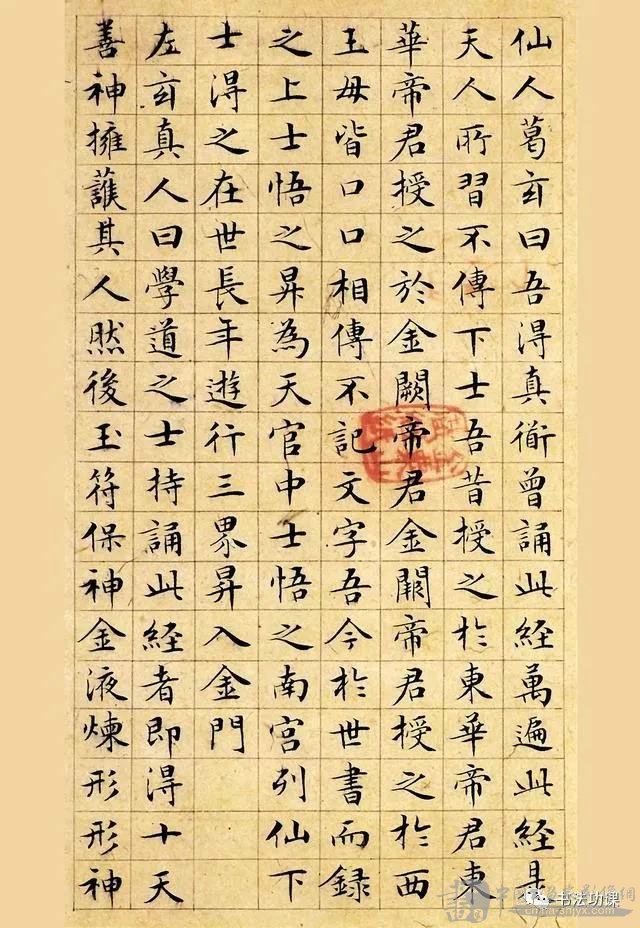 仙人葛玄曰吾得真衜曾誦此經萬遍此經是
天人所習不傳下士吾昔授之於東華帝君東
華帝君授之於金闕帝君金闕帝君授之於西
王母皆口口相傳不記文字吾今於世書而録
之上士悟之昇為天官中士悟之南宮列仙下
士得之在世長年遊行三界昇入金門
左玄真人曰學道之士持誦此經者即得十天
善神擁護其人然後玉符保神金液煉形形神
书法功课